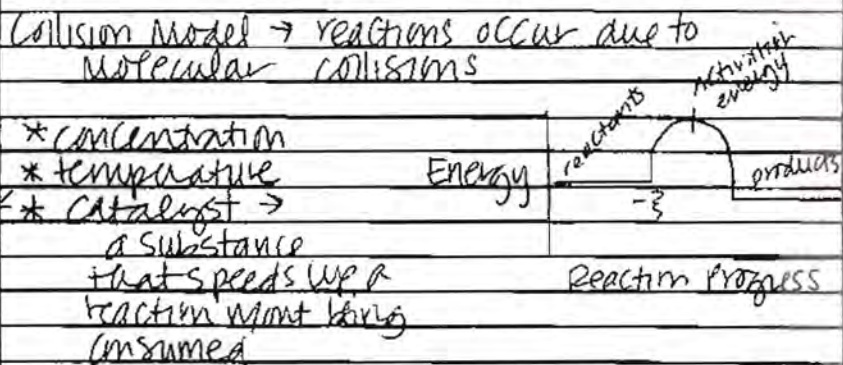 Collision Model → reactions occur due to
Molecular collisions
* concentration
* temperature
* catalyst →
a substance
that speeds up a
reaction w/out being
consumed
Energy
reactants
activation
energy
products
Reaction Progress